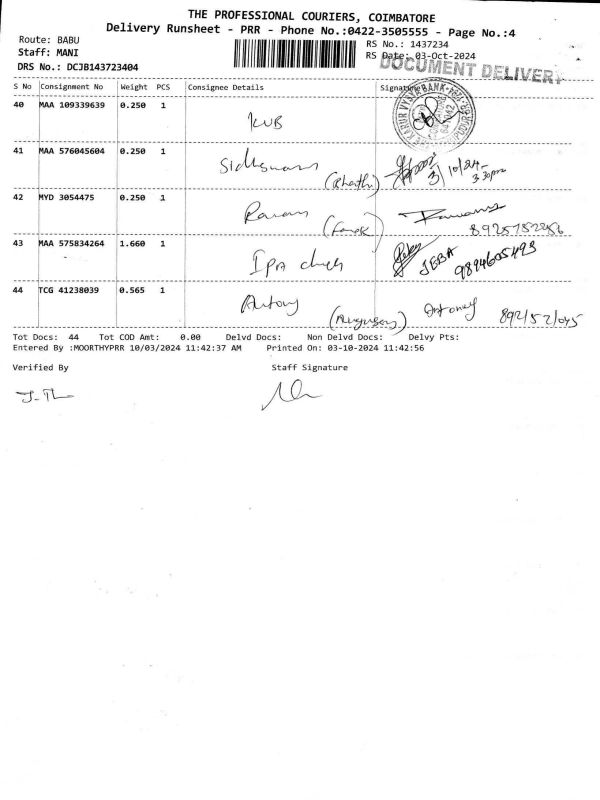 THE PROFESSIONAL COURIERS, COIMBATORE
Delivery Runsheet - PRR - Phone No.:0422-3505555 - Page No.:4
Route: BABU
RS No.: 1437234
Staff: MANI
RS Date: 03-Oct-2024
DRS No.: DCJB143723404
DOCUMENT DELIVERY
S No Consignment No Weight PCS Consignee Details Signature
40 MAA 109339639 0.250 1
KVB
41 MAA 576045604 0.250 1
3/10/24
3.30pm
42 MYD 3054475 0.250 1
43 MAA 575834264 1.660 1
IPA church
JEBA
9894605493
44 TCG 41238039 0.565 1
Antony
Antoney
Tot Docs: 44 Tot COD Amt: 0.00 Delvd Docs: Non Delvd Docs: Delvy Pts:
Entered By :MOORTHYPRR 10/03/2024 11:42:37 AM Printed On: 03-10-2024 11:42:56
Verified By Staff Signature